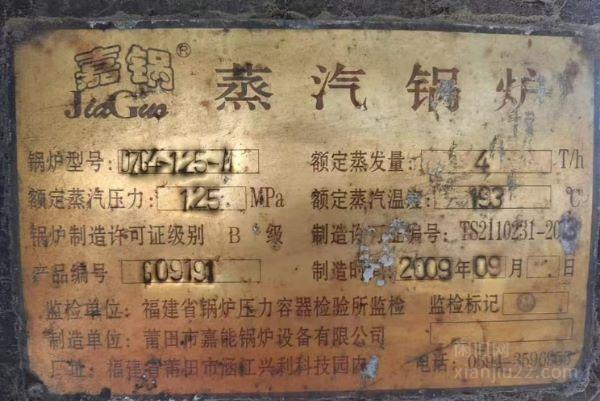 嘉锅®
JiaGuo
蒸汽锅炉
锅炉型号: DZG4-1.25-M 额定蒸发量: 4 T/h
额定蒸汽压力: 1.25 MPa 额定蒸汽温度: 193 ℃
锅炉制造许可证级别 B 级 制造许可证编号: TS2110231-20
产品编号 G09191 制造时间: 2009年09月 日
监检单位: 福建省锅炉压力容器检验所监检 监检标记
制造单位: 莆田市嘉能锅炉设备有限公司
厂址: 福建省莆田市涵江兴利科技园内 电话 0594-3596
闲旧网
xianjiu22.com